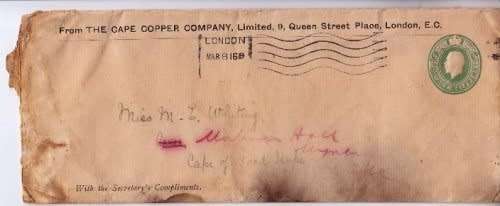 From THE CAPE COPPER COMPANY, Limited, 9, Queen Street Place, London, E.C.
LONDON
MAR 8 16
Miss M. L. Whiting
Hall
Cape of Good Hope
With the Secretary's Compliments.